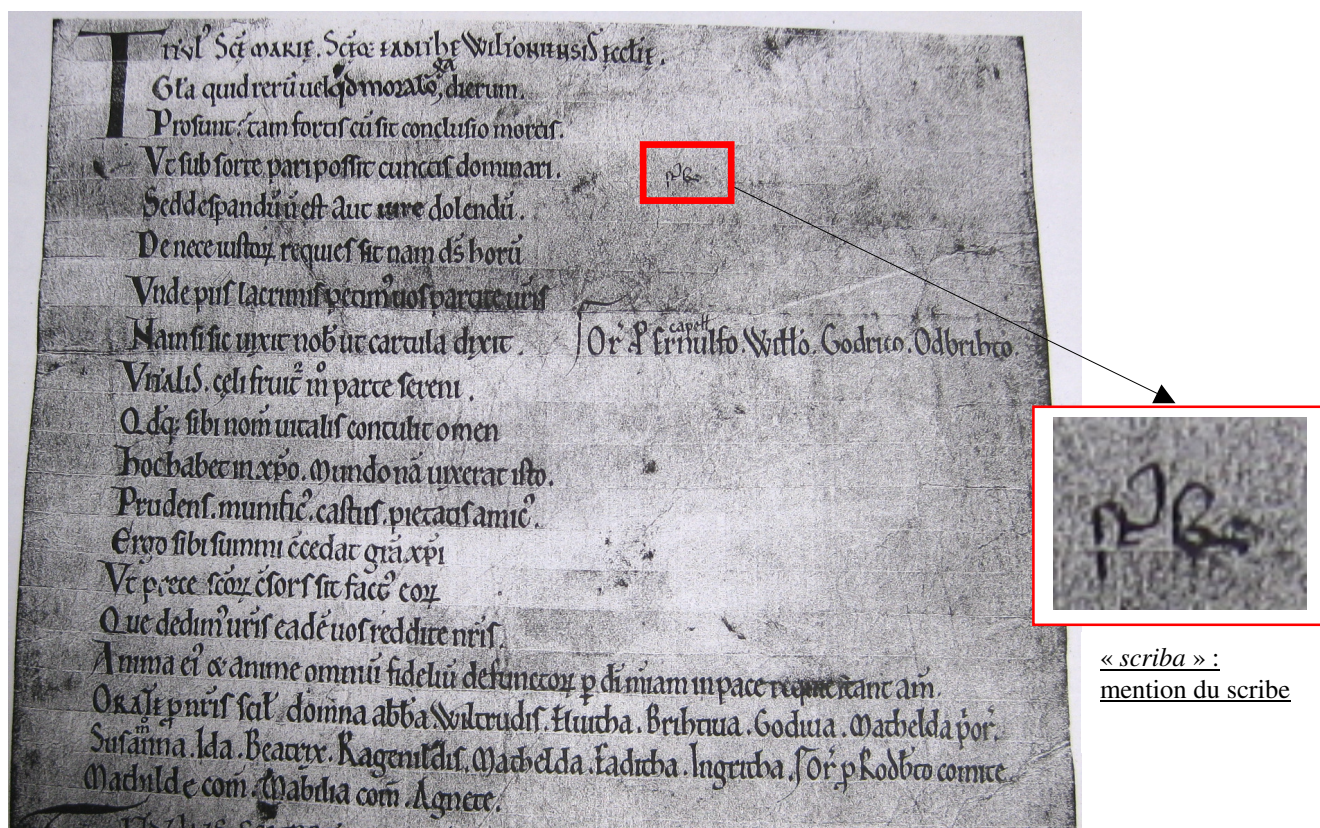 Titul' Scē MARIE. Scēq: EADITHE WILTONIENSIS ecclīe.
Gl'a quid rerū uel qd morat dierum.
Prosunt: tam fortis cū sit conclusio mortis.
Vt sub sorte pari possit cunctis dominari.
Sed despandū ñ est aut iure dolendū.
De nece iustoꝝ requies sit nam ds̄ horū
Vnde piis lacrimis petim' uos parcite ur̄is
Nam si sic uixit nob' ut cartula dixit.
⌠Or̄ ꝑ Ernulfo capell'. Will'o. Godrico. Odbrihto.
VITALIS. celi fruit' in parte sereni.
Q dq: sibi nom̄ uitalis contulit omen
hoc habet in xp̄o. Mundo nā uixerat isto.
Prudens. munific'. castus. pietatis amic'.
Ergo sibi summi c̄cedat grā xp̄i
Vt prece scōꝝ c̄sors sit fact' eoꝝ
Que dedim' ur̄is eadē uos reddite nr̄is.
Anima ei' & anime omniū fideliū defunctoꝝ ꝑ di mīam in pace requiescant am̄.
ORATE ꝓ nr̄is scil' domna abb'a Wiltrudis. Brihtiua. Godiua. Mathelda p'or.
Susanna. Ida. Beatrix. Ragenildis. Mathelda. Eaditha. Ingritha. ⌠Or̄ ꝓ Rodb'to comite
Mathilde com̄. Mabilia com̄. Agnete.
« scriba » :
mention du scribe